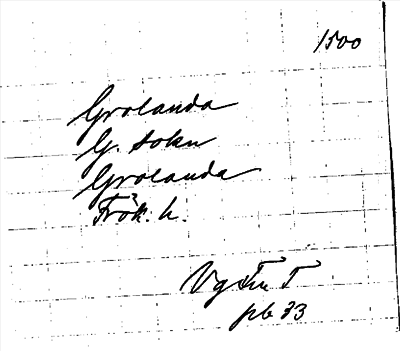 1500
Grolanda
G. sokn
Grolanda
Frök. h.
Vg Fn T
pb 33